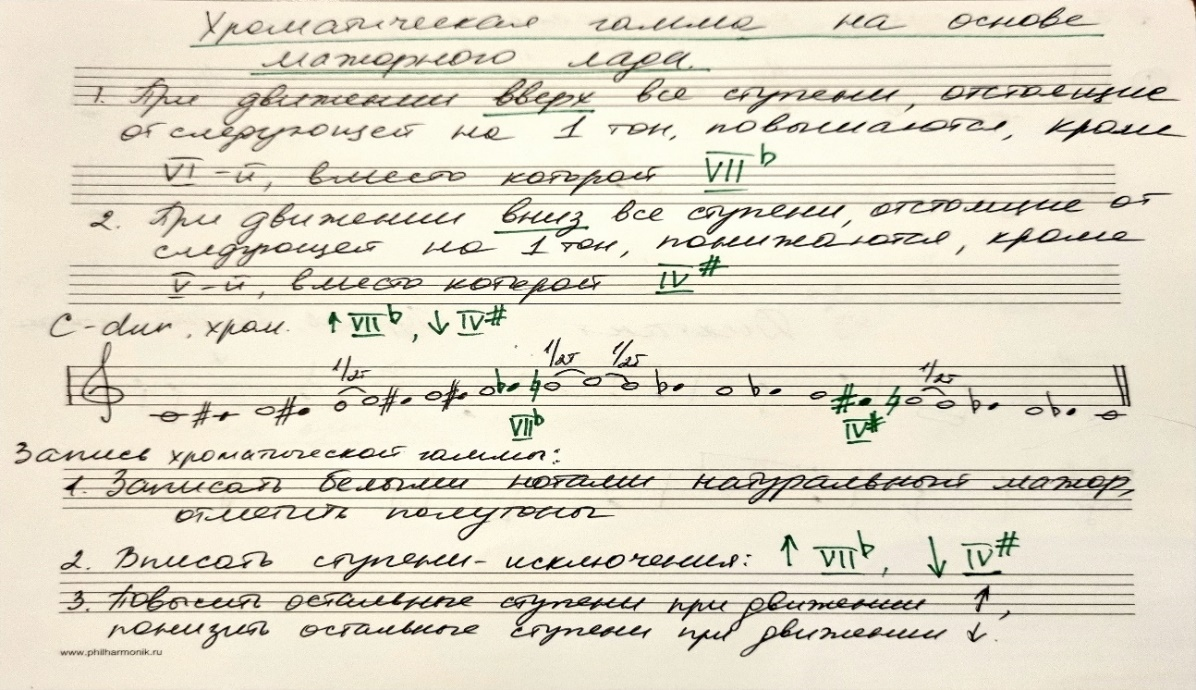 Хроматическая гамма на основе
мажорного лада.
1. При движении вверх все ступени, отстоящие
от следующей на 1 тон, повышаются, кроме
VI-й, вместо которой VII♭
2. При движении вниз все ступени, отстоящие от
следующей на 1 тон, понижаются, кроме
V-й, вместо которой IV#
C-dur, хром. ↑ VII♭, ↓ IV#
1/2т 1/2т 1/2т 1/2т
VII♭ IV#
Запись хроматической гаммы:
1. Записать белыми нотами натуральный мажор,
отметить полутоны
2. Вписать ступени-исключения: ↑ VII♭, ↓ IV#
3. Повысить остальные ступени при движении ↑,
понизить остальные ступени при движении ↓.
www.philharmonik.ru